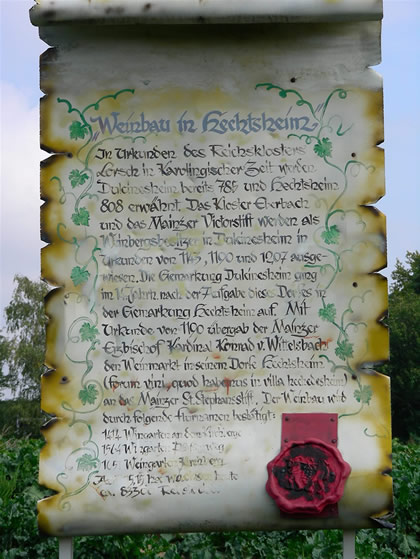 Weinbau in Hechtsheim
In Urkunden des Reichsklosters
Lorsch in Karolingischer Zeit werden
Dulcinesheim bereits 789 und Hechtsheim
808 erwähnt. Das Kloster Eberbach
und das Mainzer Victorstift werden als
Weinbergsbesitzer in Dulcinesheim in
Urkunden von 1145, 1100 und 1207 ausge-
wiesen. Die Gemarkung Dulcinesheim ging
im nach der Aufgabe dieses Dorfes in
der Gemarkung Hechtsheim auf. Mit
Urkunde von 1160 übergab der Mainzer
Erzbischof Kardinal Konrad v. Wittelsbach
den Weinmarkt in seinem Dorfe Hechtsheim
(forum vini, quod habemus in villa hechedesheim)
an das Mainzer St. Stephansstift. Der Weinbau wird
durch folgende Flurnamen bestätigt:
Wingarten an dem
1564
Weingarten
heute
ca.